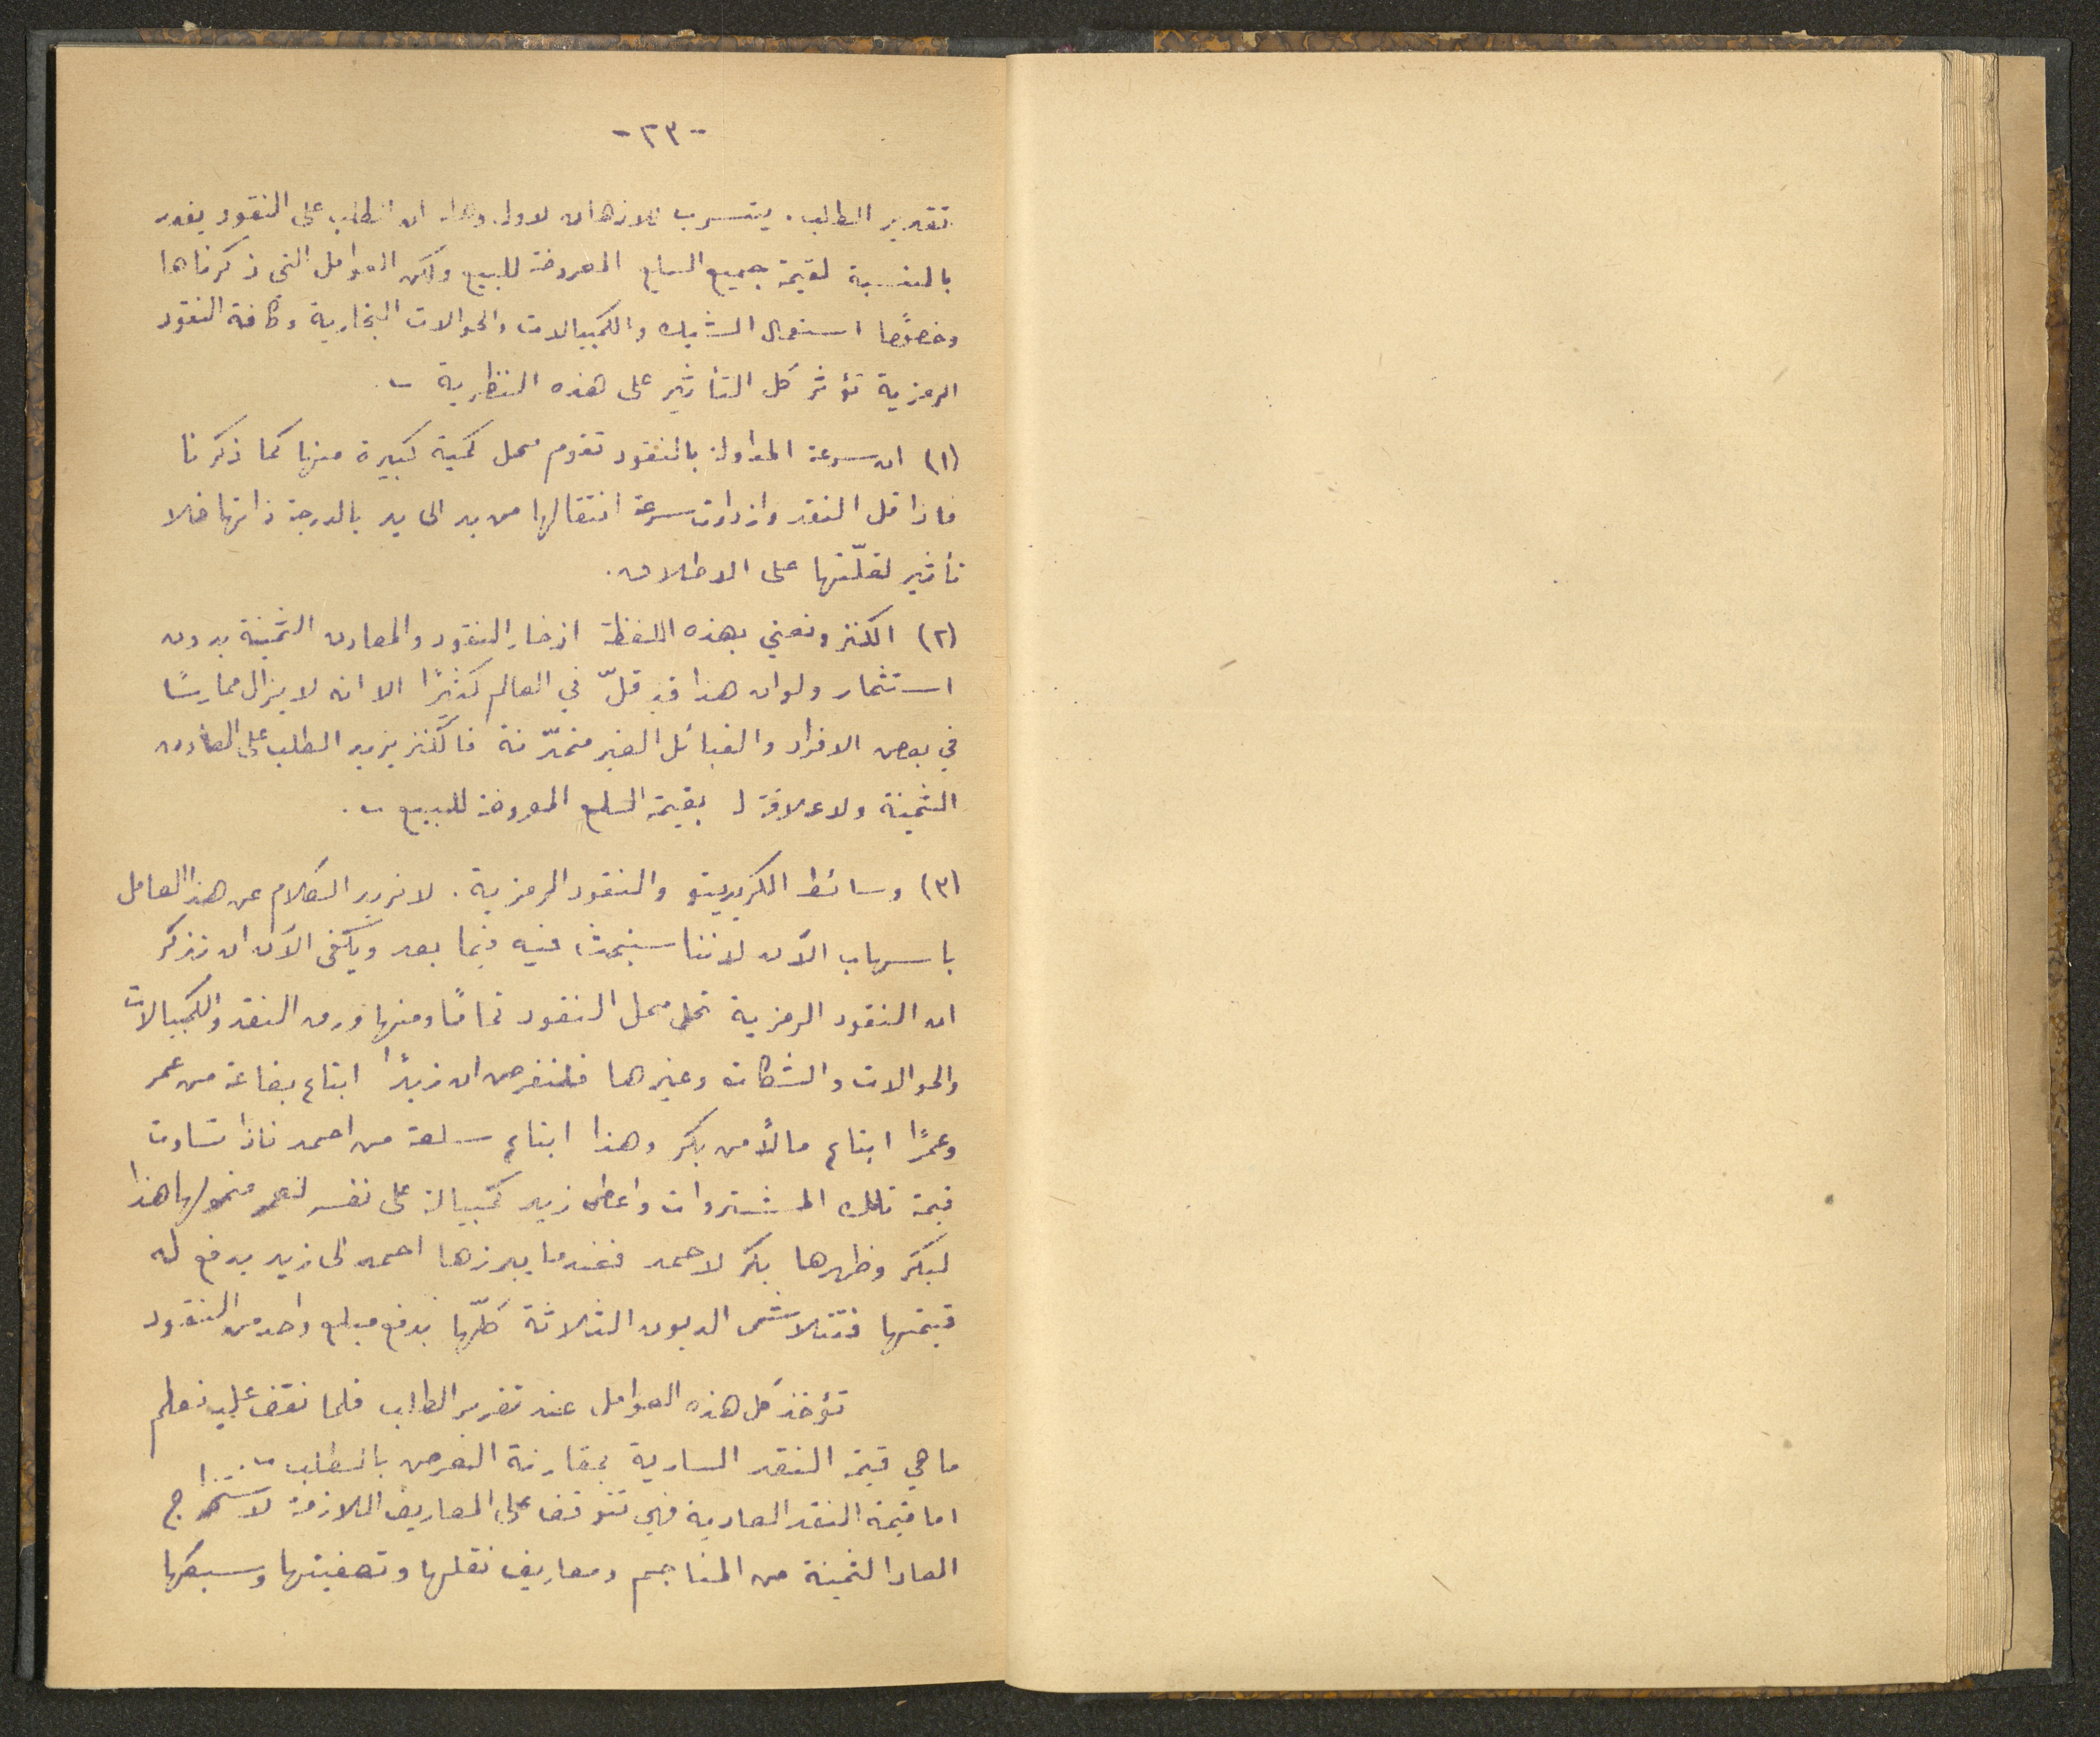 -٢٣-
تقدير الطلب. يتسرب للاذهان لاول وهلة ان الطلب على النقود يقدر
بالنسبة لقيمة جميع السلع المعروضة للبيع ولكن العوامل التي ذكرناها
وخصوصًا استعمال الشيك والكمبيالات والحوالات التجارية وكافة النقود
الرمزية تؤثر كل التأثير على هذه النظرية
(١) ان سرعة المداولة بالنقود تقوم محل كمية كبيرة منها كما ذكرنا
فاذا قل النقد وازدادت سرعة انتقالها من يد الى يد بالدرجة ذاتها فلا
تأثير لقلّتها على الاطلاق.
(٢) الكنز ونعني بهذه اللفظة ادخار النقود والمعادن الثمينة بدون
استثمار ولو ان هذا قد قلّ في العالم كثيرًا الا انه لا يزال ممارسًا
في بعض الافراد والقبائل الغير متمدّنة فالكنز يزيد الطلب على المعادن
الثمينة ولا علاقة له بقيمة السلع المعروضة للبيع.
(٣) وسائط الكريديتو والنقود الرمزية. لا نريد الكلام عن هذا العامل
باسهاب الآن لاننا سنبحث فيه فيما بعد ويكفي الآن ان نذكر
ان النقود الرمزية تحل محل النقود تمامًا ومنها ورق النقد والكمبيالات
والحوالات والشكات وغيرها فلنفرض ان زيدًا ابتاع بضاعة من عمر
وعمرًا ابتاع مالاً من بكر وهذا ابتاع سلعة من احمد فاذا تساوت
قيمة تلك المشتروات واعطى زيد كمبيالة على نفسه لعمر فحولها هذا
لبكر وظهرها بكر لاحمد فعندما يبرزها احمد الى زيد يدفع له
قيمتها فتتلاشى الديون الثلاثة كلّها بدفع مبلغ واحد من النقود
تؤخذ كل هذه العوامل عند تقدير الطلب فلما نقف عليه نعلم
ما هي قيمة النقد السارية بمقارنة العرض بالطلب
اما قيمة النقد العادية فهي تتوقف على المصاريف اللازمة لاستخراج
المعادن الثمينة من المناجم ومصاريف نقلها وتصفيتها وسبكها